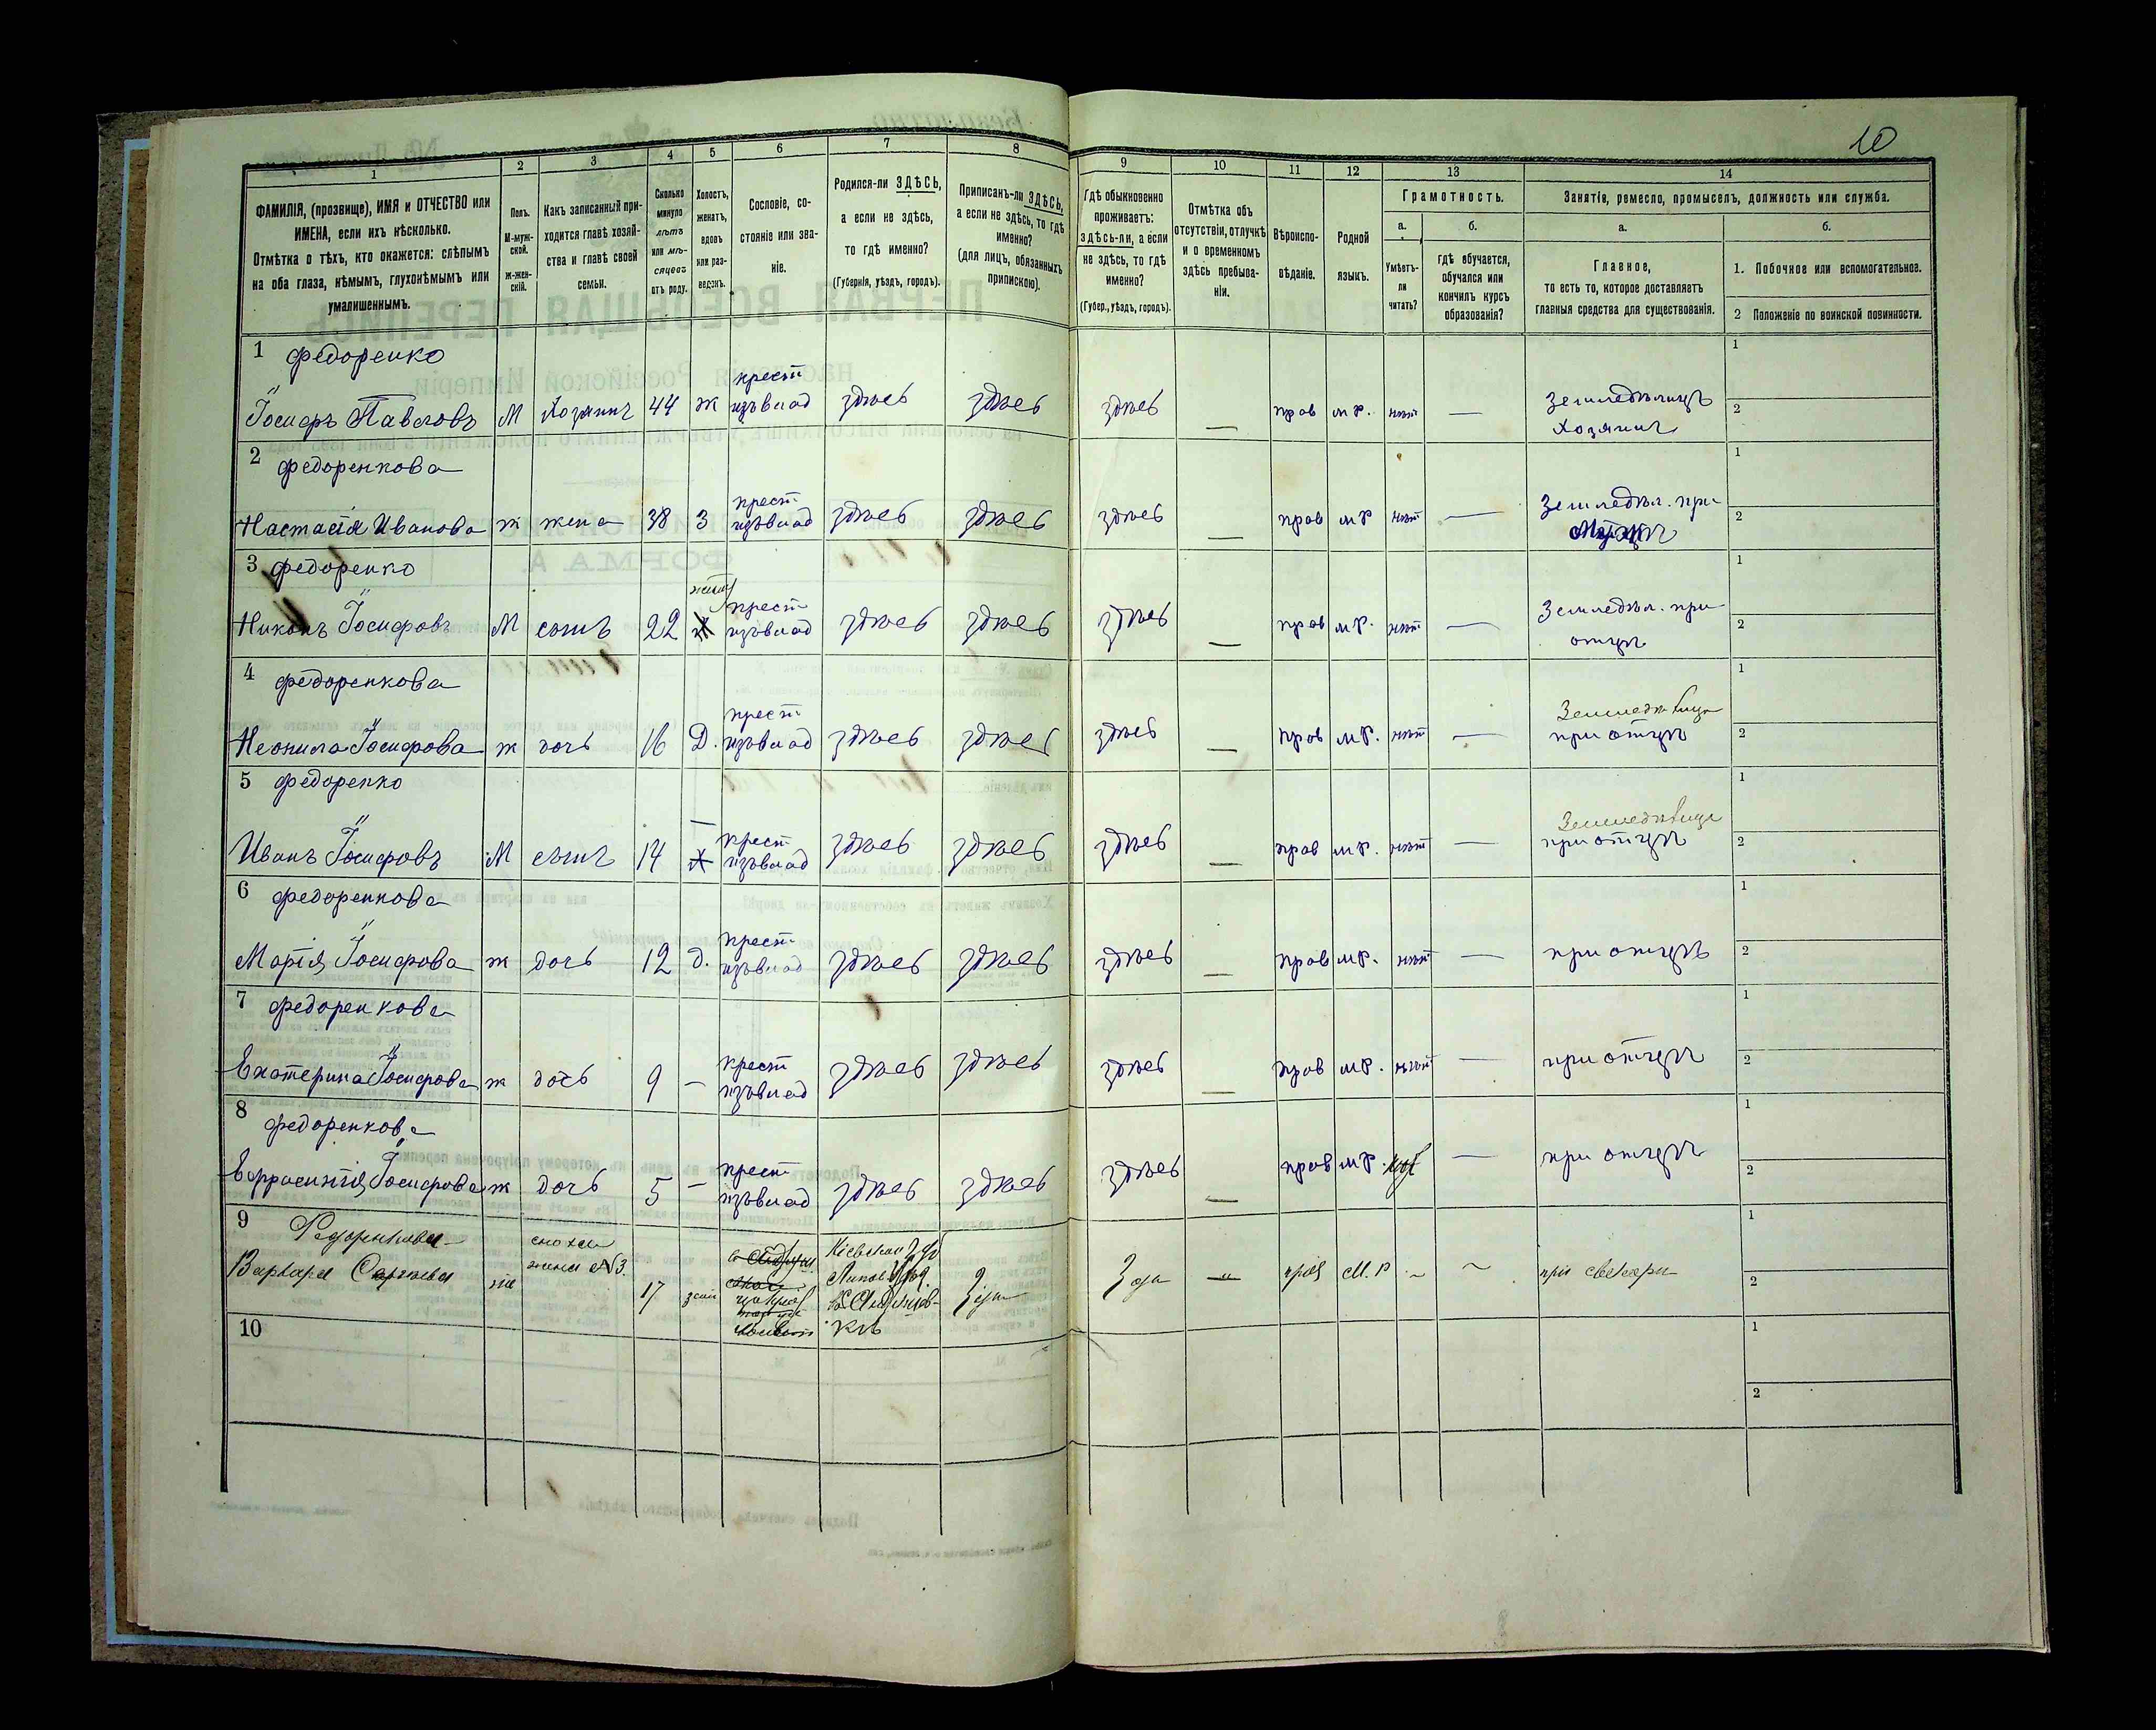 10
1
2
3
4
5
6
7
8
9
10
11
12
13
14
ФАМИЛІЯ, (прозвище), ИМЯ и ОТЧЕСТВО или
ИМЕНА, если ихъ нѣсколько.
Отмѣтка о тѣхъ, кто окажется: слѣпымъ
на оба глаза, нѣмымъ, глухонѣмымъ или
умалишеннымъ.
Полъ.
М-муж-
ской.
ж-жен-
скій.
Какъ записанный при-
ходится главѣ хозяй-
ства и главѣ своей
семьи.
Сколько
минуло
лѣтъ
или мѣ-
сяцевъ
отъ роду.
Холостъ,
женатъ,
вдовъ
или раз-
веденъ.
Сословіе, со-
стояніе или зва-
ніе.
Родился-ли ЗДѢСЬ,
а если не здѣсь,
то гдѣ именно?
(Губернія, уѣздъ, городъ).
Приписанъ-ли ЗДѢСЬ,
а если не здѣсь, то гдѣ
именно?
(для лицъ, обязанныхъ
припискою).
Гдѣ обыкновенно
проживаетъ:
здѣсь-ли, а если
не здѣсь, то гдѣ
именно?
(Губер., уѣздъ, городъ).
Отмѣтка объ
отсутствіи, отлучкѣ
и о временномъ
здѣсь пребыва-
ніи.
Вѣроиспо-
вѣданіе.
Родной
языкъ.
Грамотность.
а.
Умѣетъ-
ли
читать?
б.
гдѣ обучается,
обучался или
кончилъ курсъ
образованія?
Занятіе, ремесло, промыселъ, должность или служба.
а.
Главное,
то есть то, которое доставляетъ
главныя средства для существованія.
б.
1. Побочное или вспомогательное.
2 Положеніе по воинской повинности.
1 Федоренко
Іосифъ Павловъ М Хозяинъ 44 ж крест изъ влад здѣсь здѣсь здѣсь — прав м Р. нѣт — Земледѣлецъ Хозяинъ
1
2
2 Федоренкова
Настасія Иванова ж жена 38 З крест изъ влад здѣсь здѣсь здѣсь — прав м Р нѣт — Земледѣл. при
1
2
3 Федоренко
Никонъ Іосифовъ М сынъ 22 крест изъ влад здѣсь здѣсь здѣсь — прав м Р. нѣт — Земледѣл. при отцѣ
1
2
4 Федоренкова
Неонила Іосифова ж дочь 16 Д. крест изъ влад здѣсь здѣсь здѣсь — прав м Р. нѣт — при отцѣ
1
2
5 Федоренко
Иванъ Іосифовъ М сынъ 14 крест изъ влад здѣсь здѣсь здѣсь — прав м Р. нѣт — при отцѣ
1
2
6 Федоренкова
Марія Іосифова ж дочь 12 д. крест изъ влад здѣсь здѣсь здѣсь — прав м Р. нѣт — при отцѣ
1
2
7 Федоренкова
Екатерина Іосифова ж дочь 9 — крест изъ влад здѣсь здѣсь здѣсь — прав м Р. нѣт — при отцѣ
1
2
8 Федоренкова
Евфросинія Іосифова ж дочь 5 — крест изъ влад здѣсь здѣсь здѣсь — прав м Р. — при отцѣ
1
2
9 Федоренкова
Варвара жена №3. 17 зам Кіевской прав М. Р при свекрѣ
1
2
10
1
2